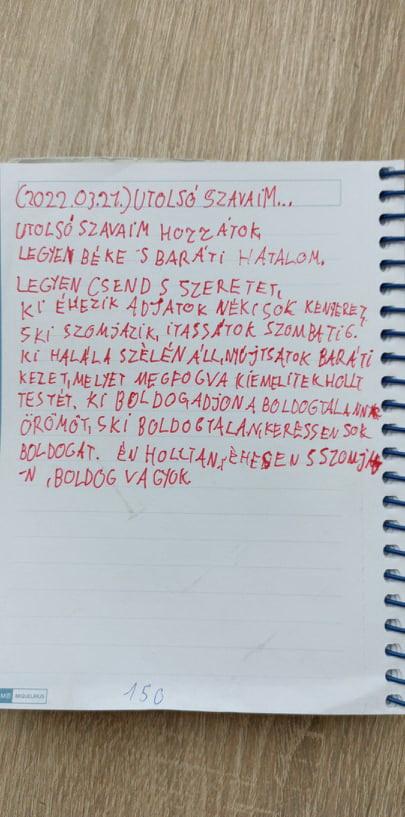 (2022.03.27.) UTOLSÓ SZAVAIM...
UTOLSÓ SZAVAIM HOZZÁTOK
LEGYEN BÉKE 'S BARÁTI HATALOM.
LEGYEN CSEND S SZERETET,
KI ÉHEZIK ADJATOK NÉKI SOK KENYERET,
SKI SZOMJAZIK, ITASSÁTOK SZOMBATIG.
KI HALÁLA SZÉLÉN ÁLL, NYÚJTSATOK BARÁTI
KEZET, MELYET MEGFOGVA KIEMELITEK HOLT
TESTÉT. KI BOLDOG ADJON A BOLDOGTALANNAK
ÖRÖMÖT, SKI BOLDOGTALAN, KERESSEN SOK
BOLDOGAT. ÉN HOLTAN, ÉHESEN S SZOMJA
-N, BOLDOG VAGYOK
MIQUELRIUS
150